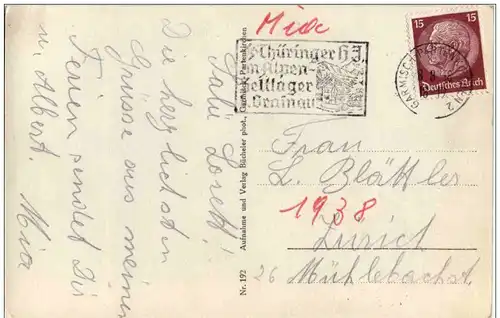 Mia
Salü Lorett!
Die herzlichsten
Grüsse aus meinen
Ferien sendet Dir
u. Albert. Mia
Nr. 192 Aufnahme und Verlag Bücheler phot., Garmisch-Partenkirchen
Thüringer HJ.
Alpen-
zeltlager
Grainau
15 15
Deutsches Reich
GARMISCH-PARTENKIRCHEN 2
Frau
L. Blättler
1938
Zürich
26 Mühlebachst.